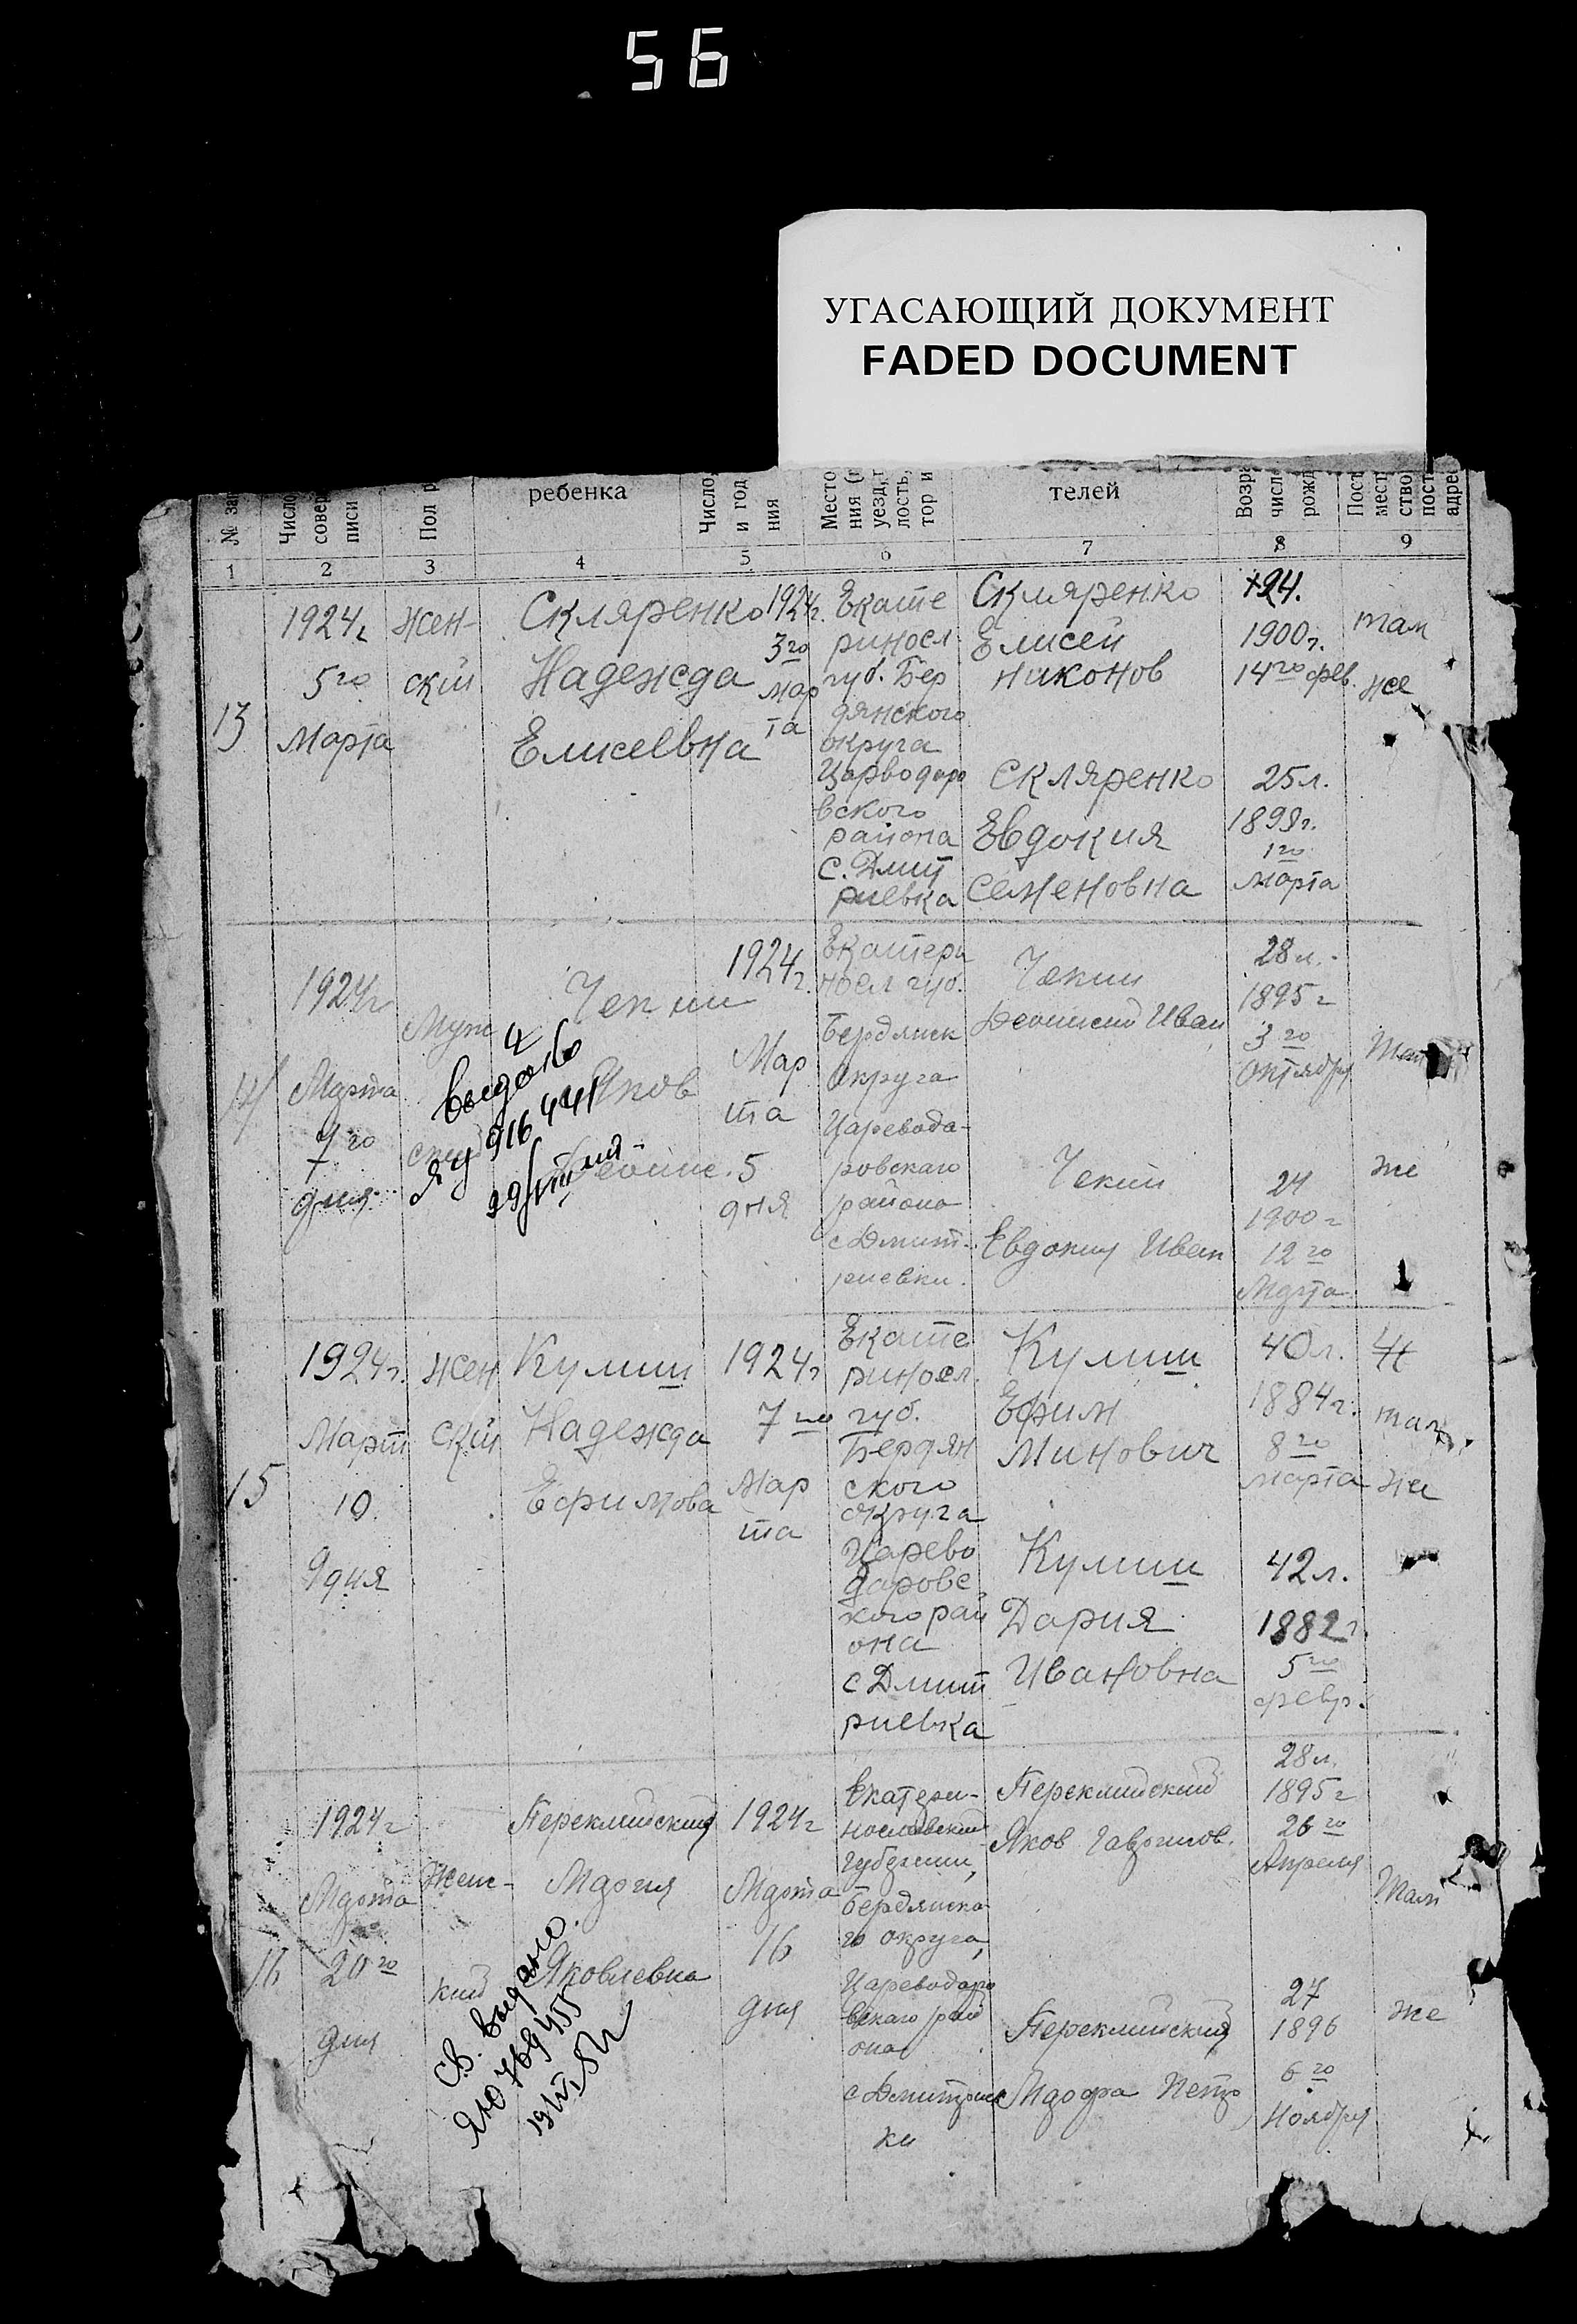 56
УГАСАЮЩИЙ ДОКУМЕНТ
FADED DOCUMENT
№ за
Число
совер
писи
Пол р
ребенка
Число,
и год
ния
Место
ния (
уезд,
лость,
тор и
телей
Возра
числ
рожд
Пост
мест
ство
пост
адрес
1
2
3
4
5
6
7
8
9
13
1924г
5го
Марта
жен-
ский
Скляренко
Надежда
Елисеевна
1924г.
3го
мар
та
Екате
риносл.
губ. Бер
дянского
округа
Царводаро
вского
района
с. Дмит
риевка
Скляренко
Елисей
никонов
Скляренко
Евдокия
семеновна
24.
1900г.
14го фев.
25л.
1898г.
1го
марта
там
же
14
1924г
Марта
7го
дня
Муж
ский
Чекин
Яков
выдано
ЯУ 916441
1924г.
Мар
та
5
дня
Екатери
носл губ.
Бердянск
округа
Царевода-
ровскаго
района
с Дмит-
риевки.
Чекин
Иван
Чекин
Евдокия Иван
28л.
1895г
3го
октября
24
1900г
12го
Марта
Там
же
15
1924г.
Март
10.
дня
жен
ский
Кулиш
Надежда
Ефимова
1924г
7го
Мар
та
Екате
риносл.
губ.
Бердян
ского
округа
Царево
даровс
кого рай
она
с Дмит
риевка
Кулиш
Ефим
Минович
Кулиш
Дария
Ивановна
40л.
1884г.
8го
марта
42л.
1882г.
5го
февр.
там
же
16
1924г
Марта
20го
дня
Женс-
кий
Мария
Яковлевна
Св. выдано.
ЯЮ 769455
1924г
Марта
16
дня
Екатери-
нославский
губернии,
Бердянска-
го округа,
Цареводаро
вскаго рай
она
с Дмитриев
ки
Яков Гаврилов.
Петр
28л.
1895г
26го
Апреля
27
1896
6го
Ноября
Там
же